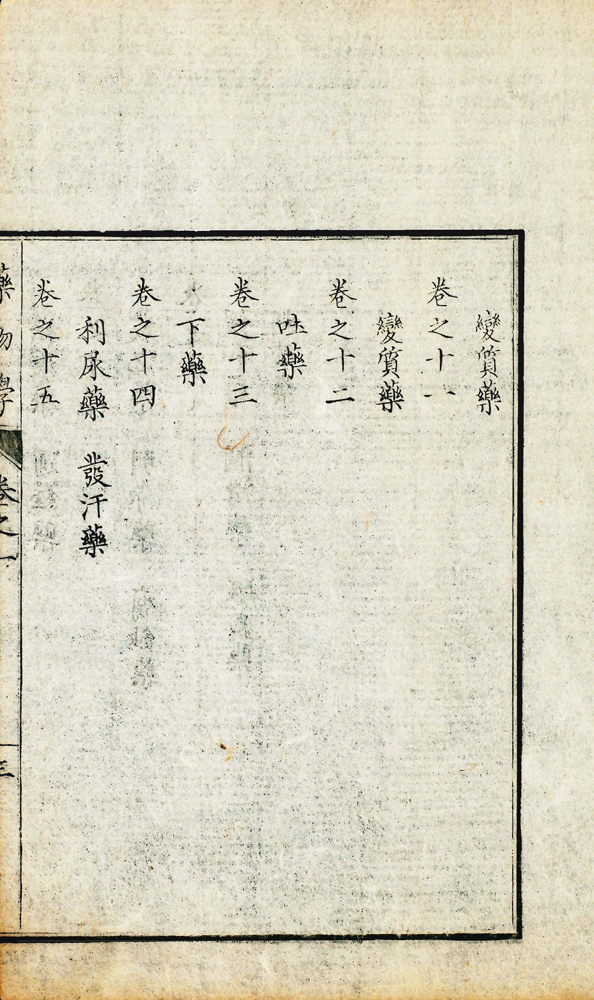 變質藥
卷之十一
變質藥
卷之十二
吐藥
卷之十三
下藥
卷之十四
利尿藥 發汗藥
卷之十五
藥物學 卷之一 三